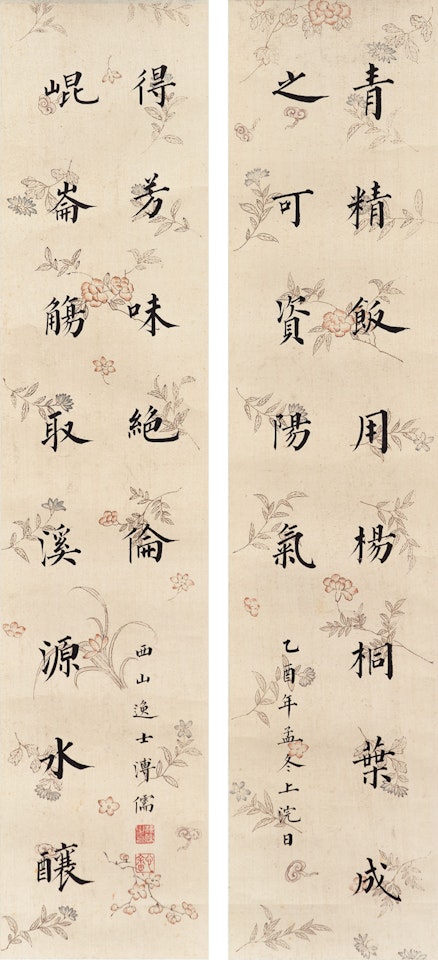 青精飯用楊桐葉成
之可資陽氣
乙酉年孟冬上浣日
崐崙觴取溪源水釀
得芳味絶倫
西山逸士溥儒